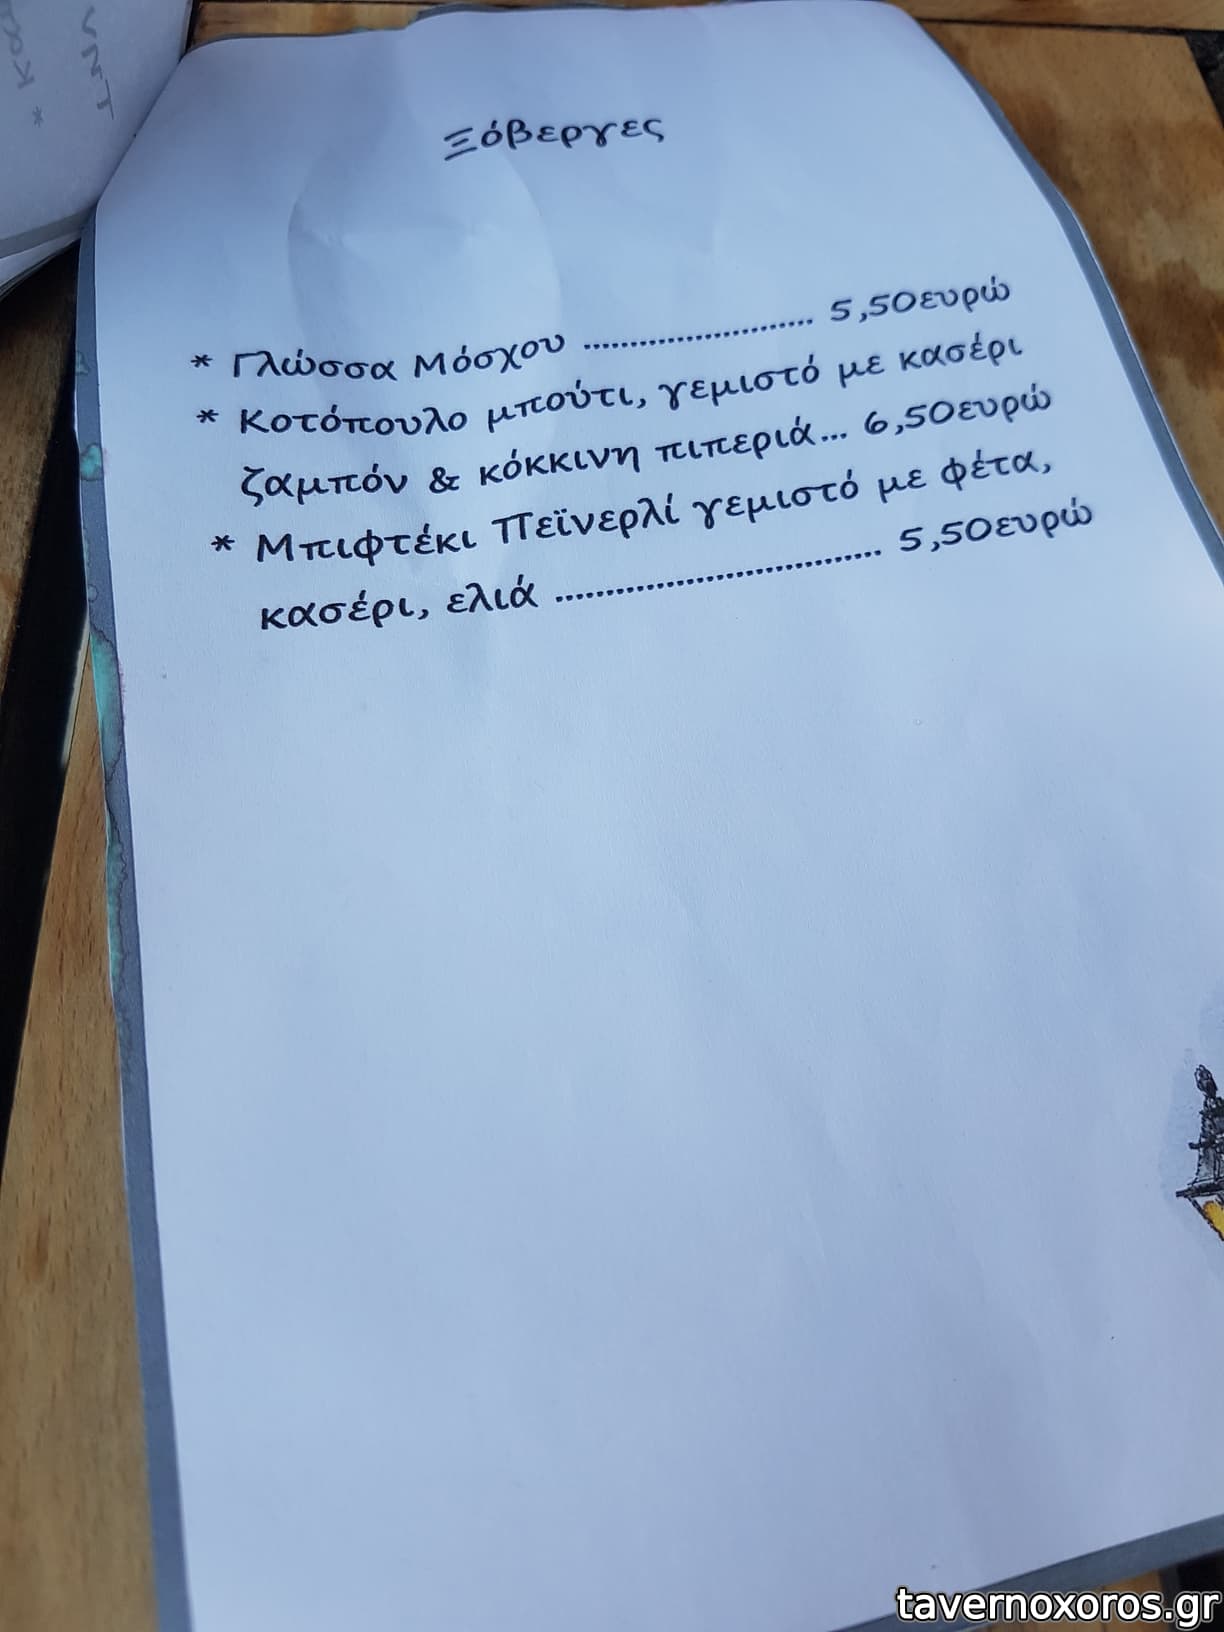 Ξόβεργες
* Γλώσσα Μόσχου ........................ 5,50ευρώ
* Κοτόπουλο μπούτι, γεμιστό με κασέρι
ζαμπόν & κόκκινη πιπεριά... 6,50ευρώ
* Μπιφτέκι Πεϊνερλί γεμιστό με φέτα,
κασέρι, ελιά .................................. 5,50ευρώ
tavernoxoros.gr